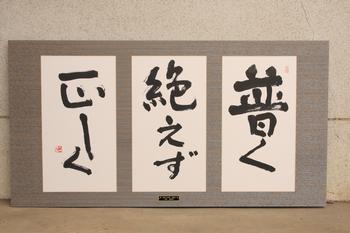 普く
絶えず
正しく